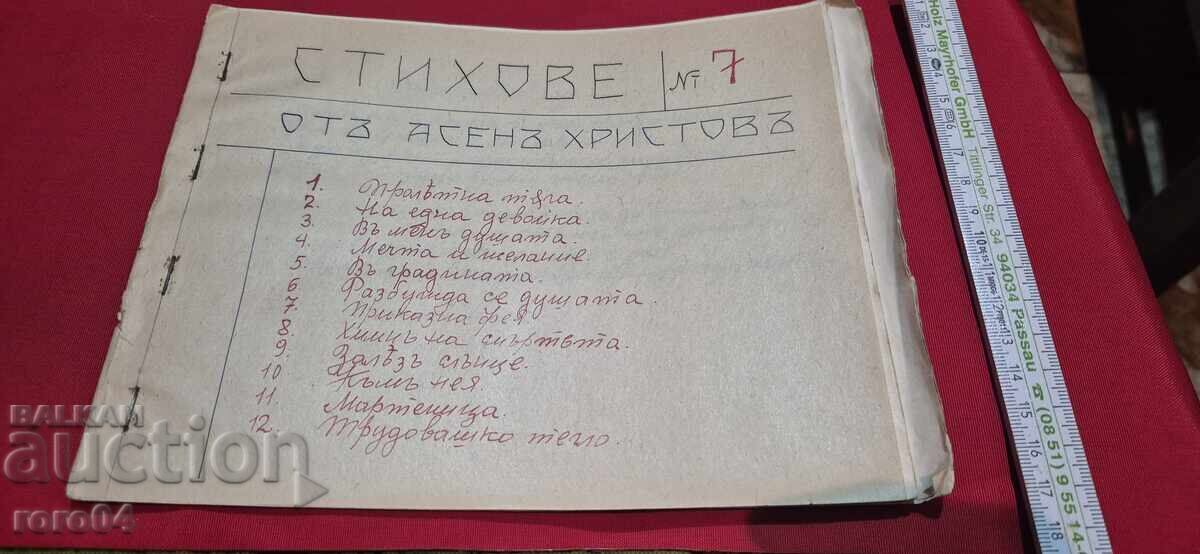 СТИХОВЕ № 7
ОТЪ АСЕНЪ ХРИСТОВЪ
1. Пролѣтна тѫга.
2. На една девойка.
3. Въ менъ душата.
4. Мечта и желание.
5. Въ градината.
6. Разбужда се душата.
7. Приказна фея
8. Химнъ на смъртьта.
9. Залѣзъ слънце.
10 Къмъ нея.
11. Мартеница.
12. Трудовашко тегло.
Holz Mayrhofer GmbH Tittlinger Str. 34 94034 Passau ☎ (08 51) 9 55 14-
2 3 4 5 6 7 8 9 10 11 12 13 14 15 16 17 18
БАЛКАН
auction
roro04